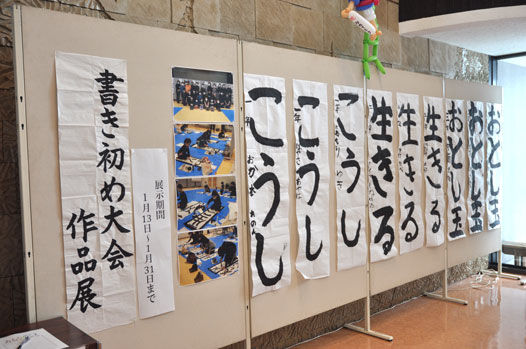 書き初め大会
作品展
展示期間
1月13日～1月31日まで
こうし
こうし
こうし
生きる
生きる
生きる
おとし玉
おとし玉
おとし玉